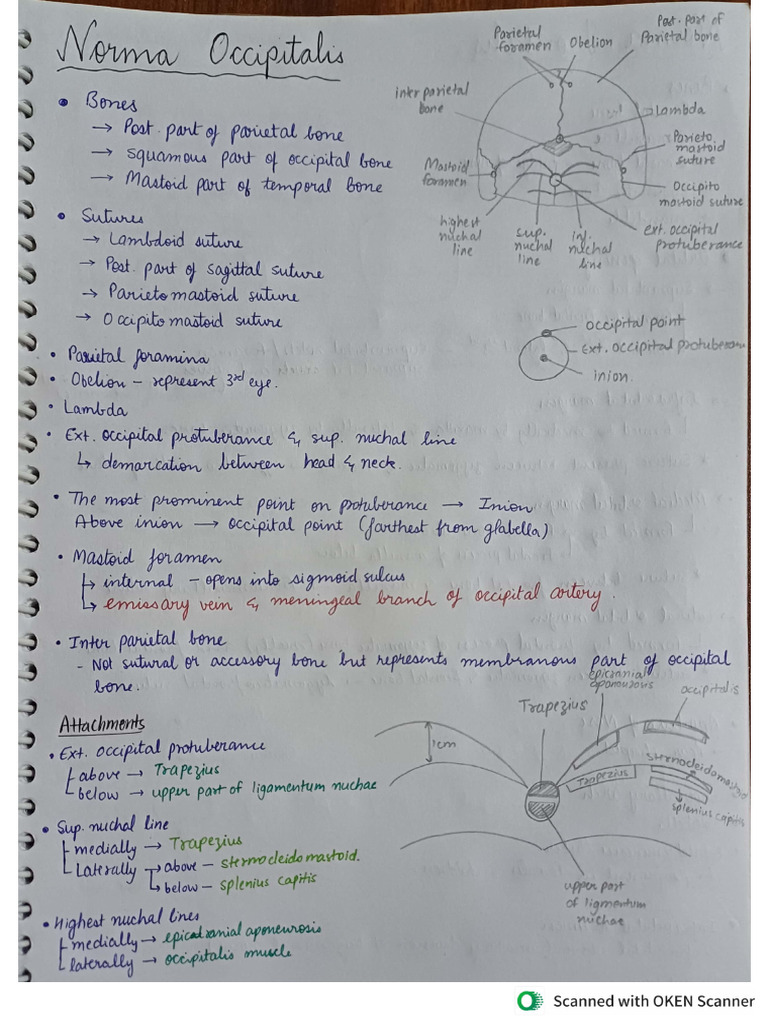 Norma Occipitalis
• Bones
→ Post. part of parietal bone
→ squamous part of occipital bone
→ Mastoid part of temporal bone
• Sutures
→ Lambdoid suture
→ Post. part of sagittal suture
→ Parieto mastoid suture
→ Occipito mastoid suture
Parietal foramen
Obelion
Post. part of Parietal bone
inter parietal bone
Lambda
Parieto mastoid suture
Mastoid foramen
Occipito mastoid suture
highest nuchal line
sup. nuchal line
inf. nuchal line
ext. occipital protuberance
occipital point
Ext. occipital protuberan
inion.
• Parietal foramina
• Obelion – represent 3rd eye.
• Lambda
• Ext. occipital protuberance & sup. nuchal line
↳ demarcation between head & neck.
• The most prominent point on protuberance → Inion
Above inion → occipital point (farthest from glabella)
• Mastoid foramen
↳ internal – opens into sigmoid sulcus
↳ emissary vein & meningeal branch of occipital artery.
• Inter parietal bone
- Not sutural or accessory bone but represents membranous part of occipital
bone.
Attachments
• Ext. occipital protuberance
above → Trapezius
below → upper part of ligamentum nuchae
• Sup. nuchal line
medially → Trapezius
Laterally → above – sternocleidomastoid.
↳ below – splenius capitis
• Highest nuchal lines
medially → epicranial aponeurosis
laterally → occipitalis muscle
Trapezius
epicranial aponourosis
occipitalis
1cm
Trapezius
sternocleidomastoid
splenius capitis
upper part
of ligmentum
nuchae
Scanned with OKEN Scanner